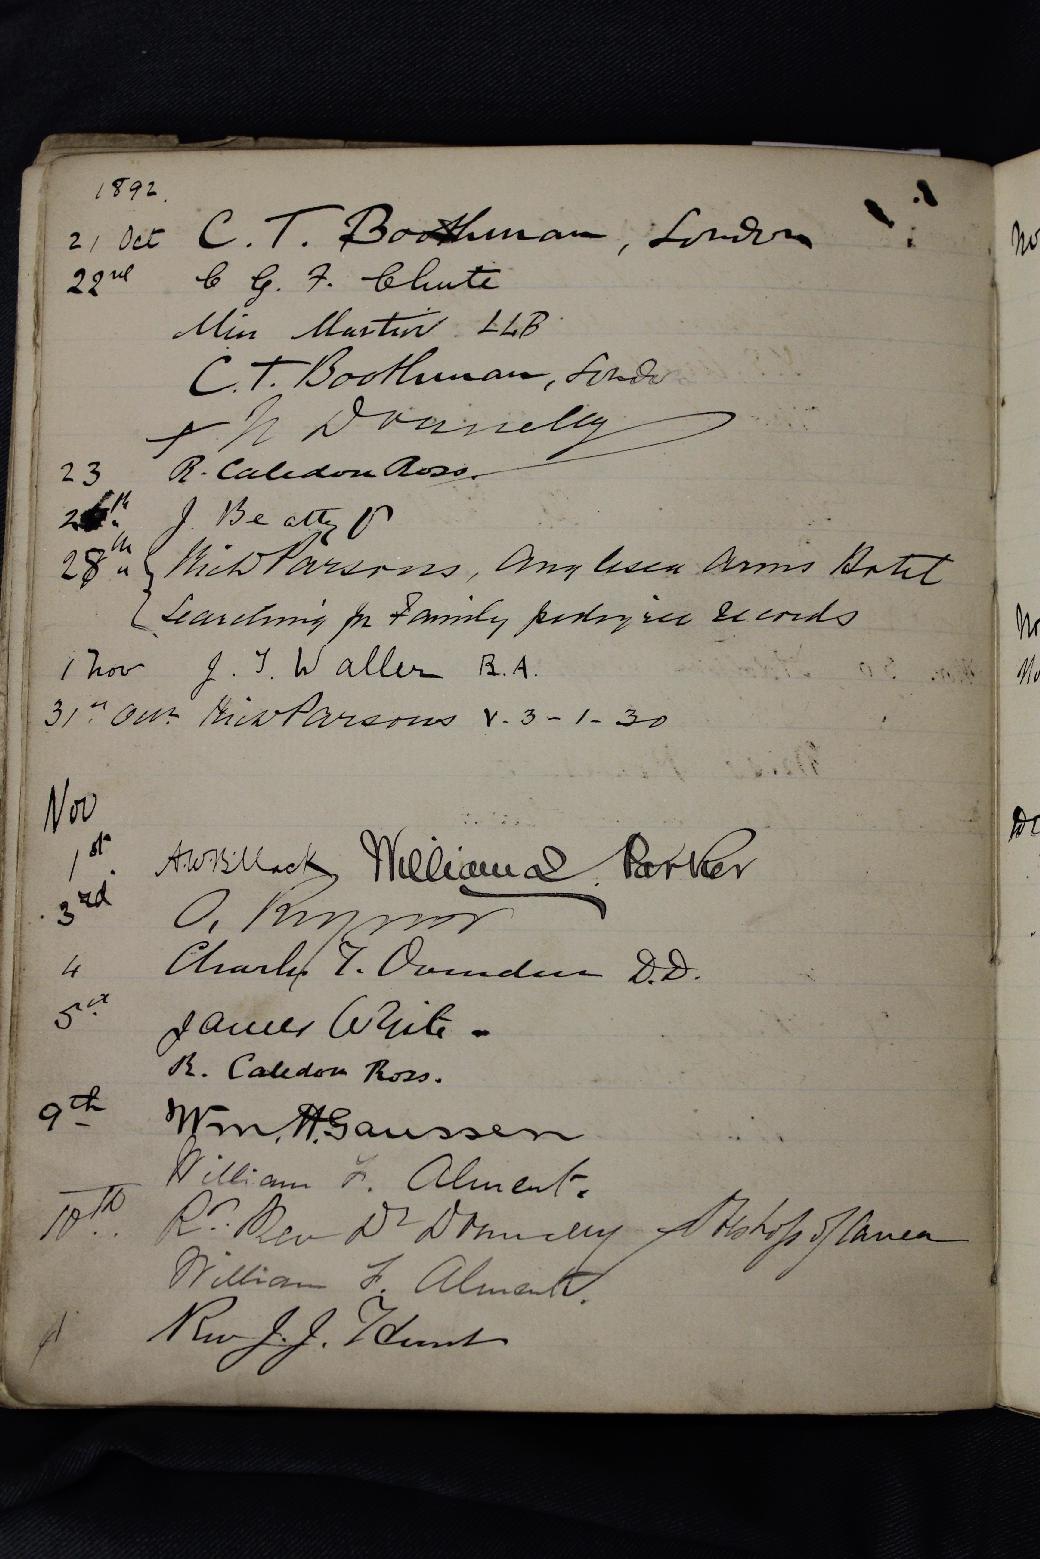 1892.
21 Oct C. T. Boothman, London
22nd C G. F. Chute
Miss Martin LLB
C. T. Boothman, London
+ N Donnelly
23 R. Caledon Ross.
2 th J. Beatty
28th Parsons, Anglesea Arms Hotel
Searching for Family pedigree records
1 Nov J. F. Waller B.A.
31st Parsons V. 3-1-30
Nov
1st. William Parker
3rd
4 Charles T. Ovenden D.D.
5 James White
R. Caledon Ross.
9th Wm. H. Gaussen
William F. Alment.
10th Rt. Rev Dr Donnelly Bishop of Canea
William F. Alment.
Rev J. J. Hunt
No
No
No